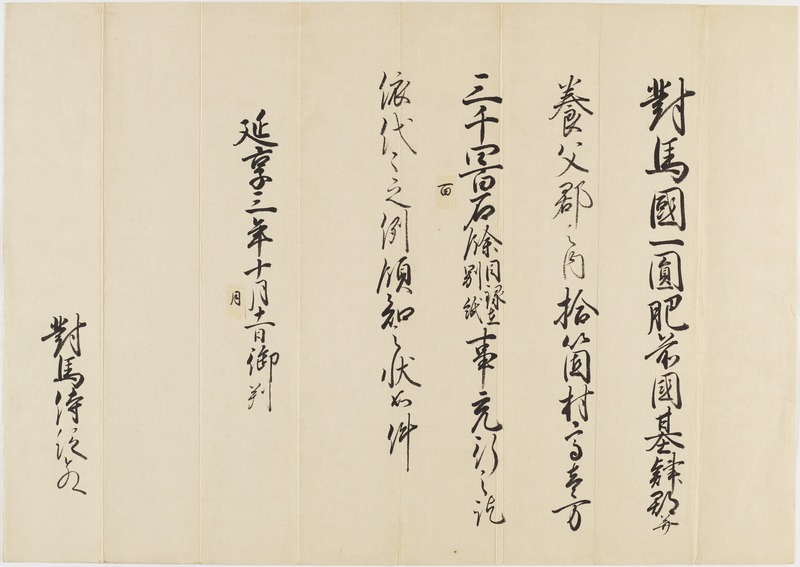 對馬國一圓肥前國基肄郡并
養父郡之内拾箇村高壹万
三千四百石餘目録在別紙事充行之訖
百
依代々之例領知之状如件
延享三年十月十一日御判
月
對馬侍従殿